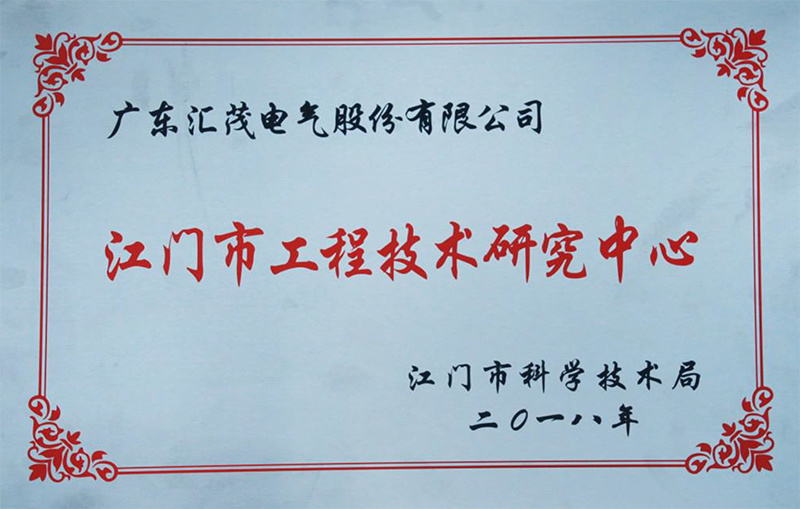 广东汇茂电气股份有限公司
江门市工程技术研究中心
江门市科学技术局
二〇一八年